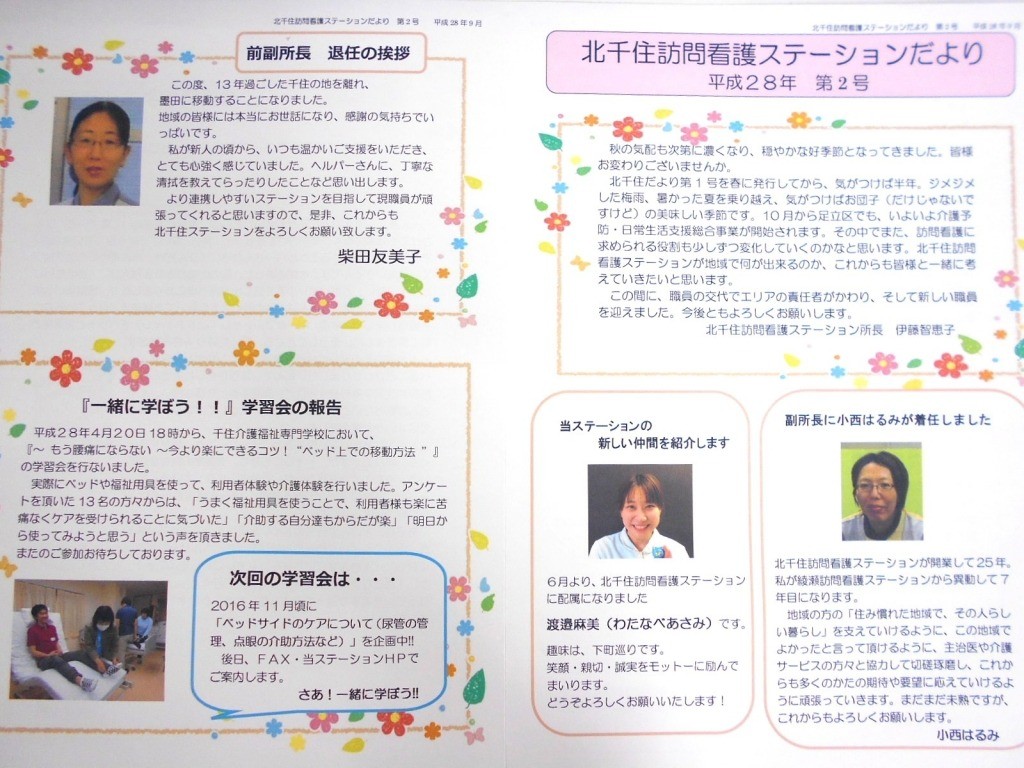 北千住訪問看護ステーションだより 第2号 平成28年9月
前副所長 退任の挨拶
この度、13年過ごした千住の地を離れ、
墨田に移動することになりました。
地域の皆様には本当にお世話になり、感謝の気持ちでい
っぱいです。
私が新人の頃から、いつも温かいご支援をいただき、
とても心強く感じていました。ヘルパーさんに、丁寧な
清拭を教えてらったりしたことなど思い出します。
より連携しやすいステーションを目指して現職員が頑
張ってくれると思いますので、是非、これからも
北千住ステーションをよろしくお願い致します。
柴田友美子
『一緒に学ぼう！！』学習会の報告
平成28年4月20日18時から、千住介護福祉専門学校において、
『～ もう腰痛にならない ～今より楽にできるコツ！“ベッド上での移動方法 ”』
の学習会を行ないました。
実際にベッドや福祉用具を使って、利用者体験や介護体験を行いました。アンケ
ートを頂いた13名の方々からは、「うまく福祉用具を使うことで、利用者様も楽に苦
痛なくケアを受けられることに気づいた」「介助する自分達もからだが楽」「明日か
ら使ってみようと思う」という声を頂きました。
またのご参加お待ちしております。
次回の学習会は・・・
2016年11月頃に
「ベッドサイドのケアについて（尿管の管
理、点眼の介助方法など）」を企画中!!
後日、FAX・当ステーションHPで
ご案内します。
さあ！一緒に学ぼう!!
北千住訪問看護ステーションだより 第2号 平成28年9月
北千住訪問看護ステーションだより
平成28年 第2号
秋の気配も次第に濃くなり、穏やかな好季節となってきました。皆様
お変わりございませんか。
北千住だより第1号を春に発行してから、気がつけば半年。ジメジメ
した梅雨、暑かった夏を乗り越え、気がつけばお団子（だけじゃないで
すけど）の美味しい季節です。10月から足立区でも、いよいよ介護予
防・日常生活支援総合事業が開始されます。その中でまた、訪問看護に
求められる役割も少しずつ変化していくのかなと思います。北千住訪問
看護ステーションが地域で何が出来るのか、これからも皆様と一緒に考
えていきたいと思います。
この間に、職員の交代でエリアの責任者がかわり、そして新しい職員
を迎えました。今後ともよろしくお願いします。
北千住訪問看護ステーション所長 伊藤智恵子
当ステーションの
新しい仲間を紹介します
6月より、北千住訪問看護ステーション
に配属になりました
渡邉麻美（わたなべあさみ）です。
趣味は、下町巡りです。
笑顔・親切・誠実をモットーに励んで
まいります。
どうぞよろしくお願いいたします！
副所長に小西はるみが着任しました
北千住訪問看護ステーションが開業して25年。
私が綾瀬訪問看護ステーションから異動して7
年目になります。
地域の方の「住み慣れた地域で、その人らし
い暮らし」を支えていけるように、この地域で
よかったと言って頂けるように、主治医や介護
サービスの方々と協力して切磋琢磨し、これか
らも多くのかたの期待や要望に応えていけるよ
うに頑張っていきます。まだまだ未熟ですが、
これからもよろしくお願いします。
小西はるみ